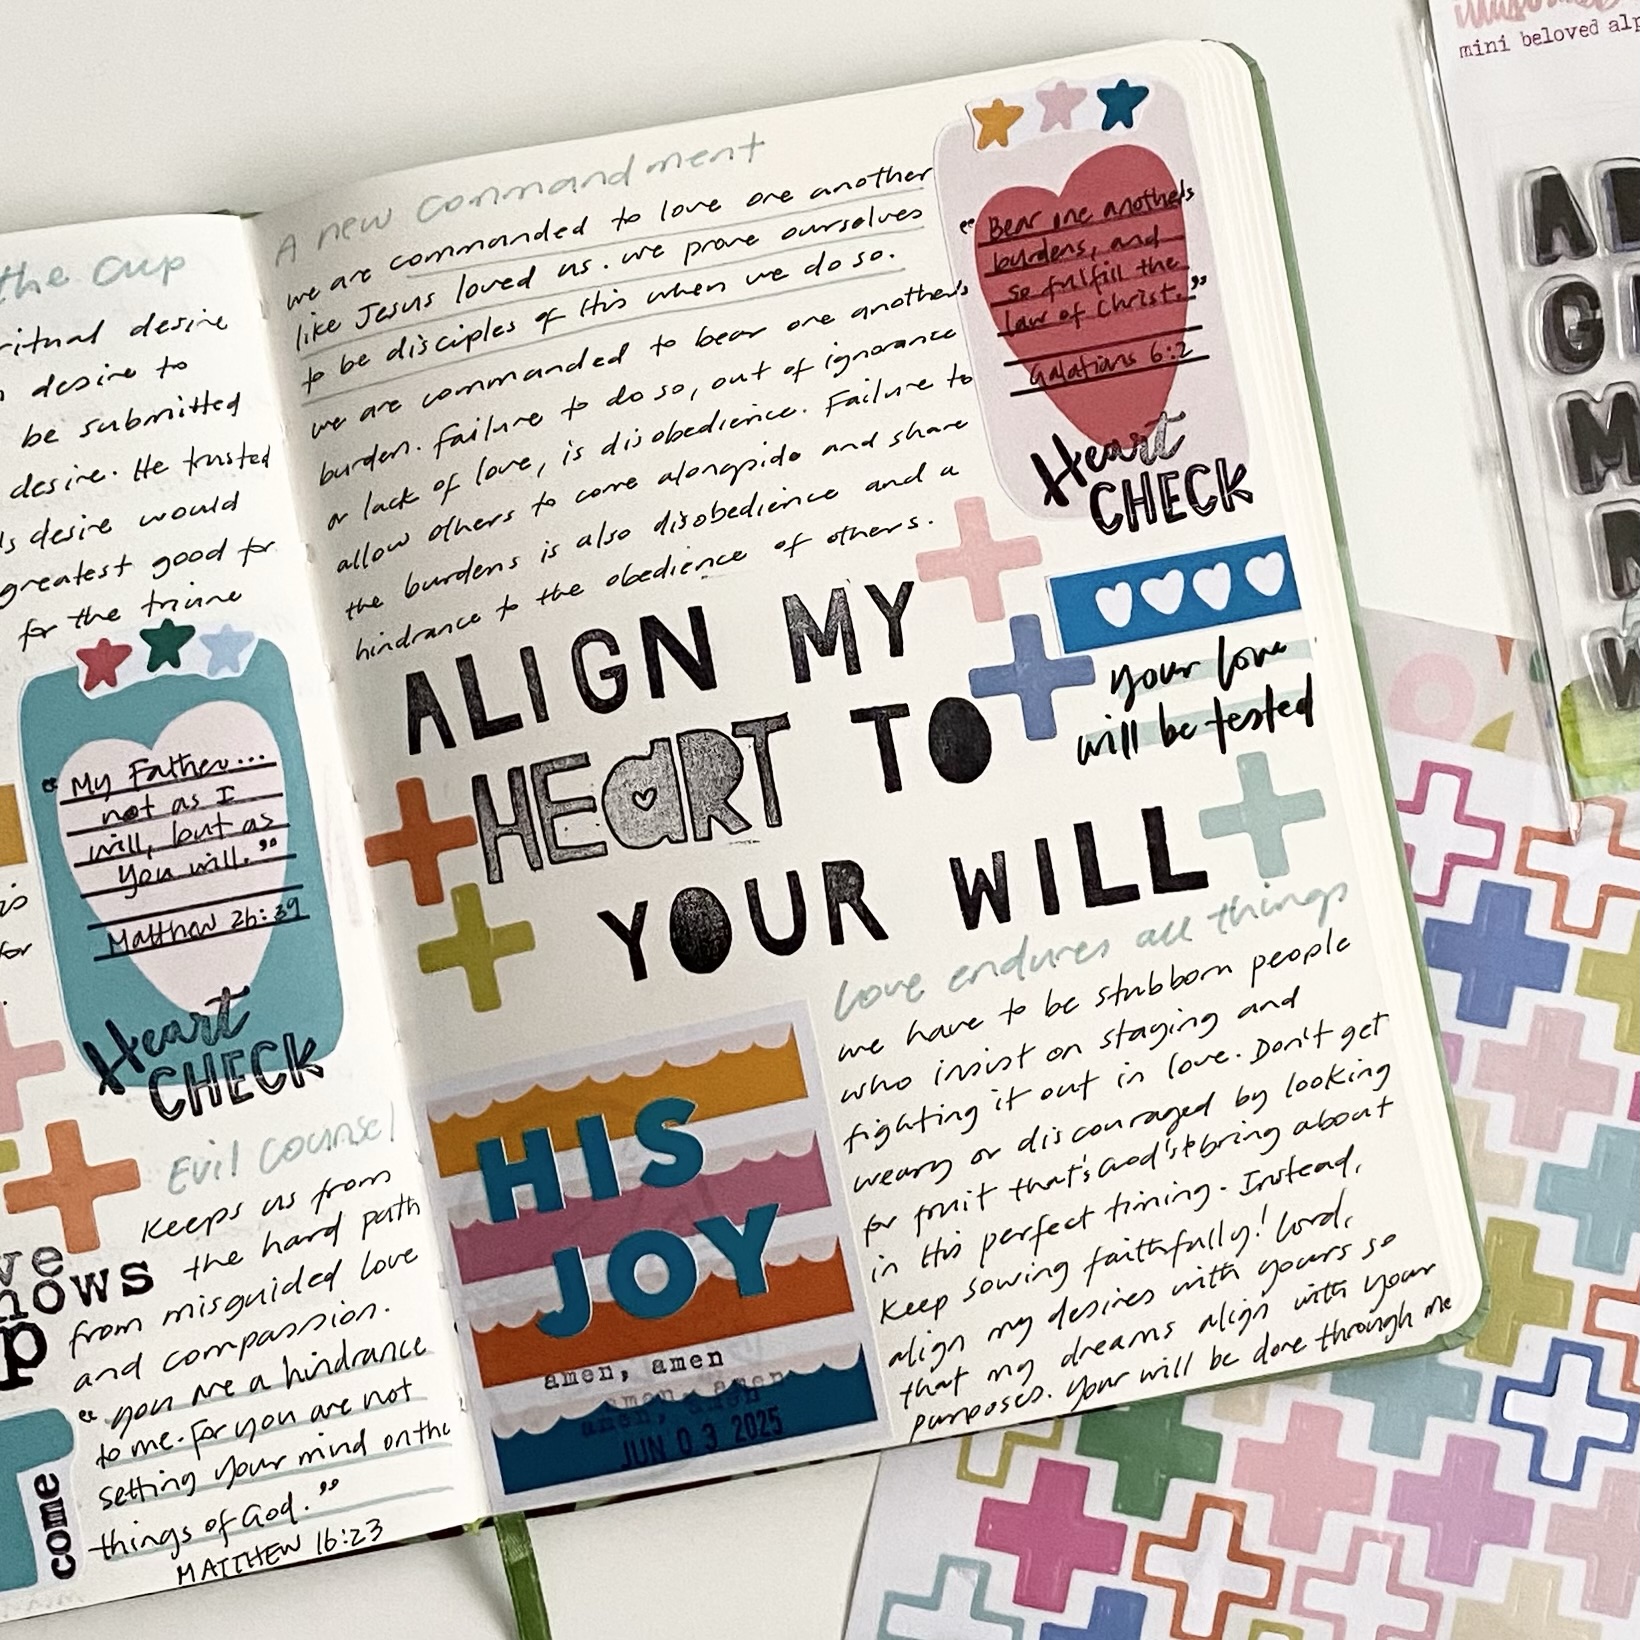 the cup
ritual desire
desire to
be submitted
desire. He trusted
s desire would
greatest good for
for the triune
"My Father...
not as I
will, but as
You will."
Matthew 26:39
Heart
CHECK
Evil Counsel
Keeps us from
the hard path
from misguided love
and compassion.
"you are a hindrance
to me. For you are not
setting your mind on the
things of God."
MATTHEW 16:23
ve
nows
p
come
A new commandment
we are commanded to love one another
like Jesus loved us. we prove ourselves
to be disciples of His when we do so.
we are commanded to bear one another's
burden. Failure to do so, out of ignorance
or lack of love, is disobedience. Failure to
allow others to come alongside and share
the burdens is also disobedience and a
hindrance to the obedience of others.
"Bear one another's
burdens, and
so fulfill the
law of Christ."
Galatians 6:2
Heart
CHECK
your love
will be tested
ALIGN MY
HEART TO
YOUR WILL
HIS
JOY
amen, amen
amen, amen
amen, amen
JUN 03 2025
Love endures all things
we have to be stubborn people
who insist on staying and
fighting it out in love. Don't get
weary or discouraged by looking
for fruit that's God's to bring about
in His perfect timing. Instead,
keep sowing faithfully! Lord,
align my desires with yours so
that my dreams align with your
purposes. Your will be done through me
mini beloved alp
A
G
M
W